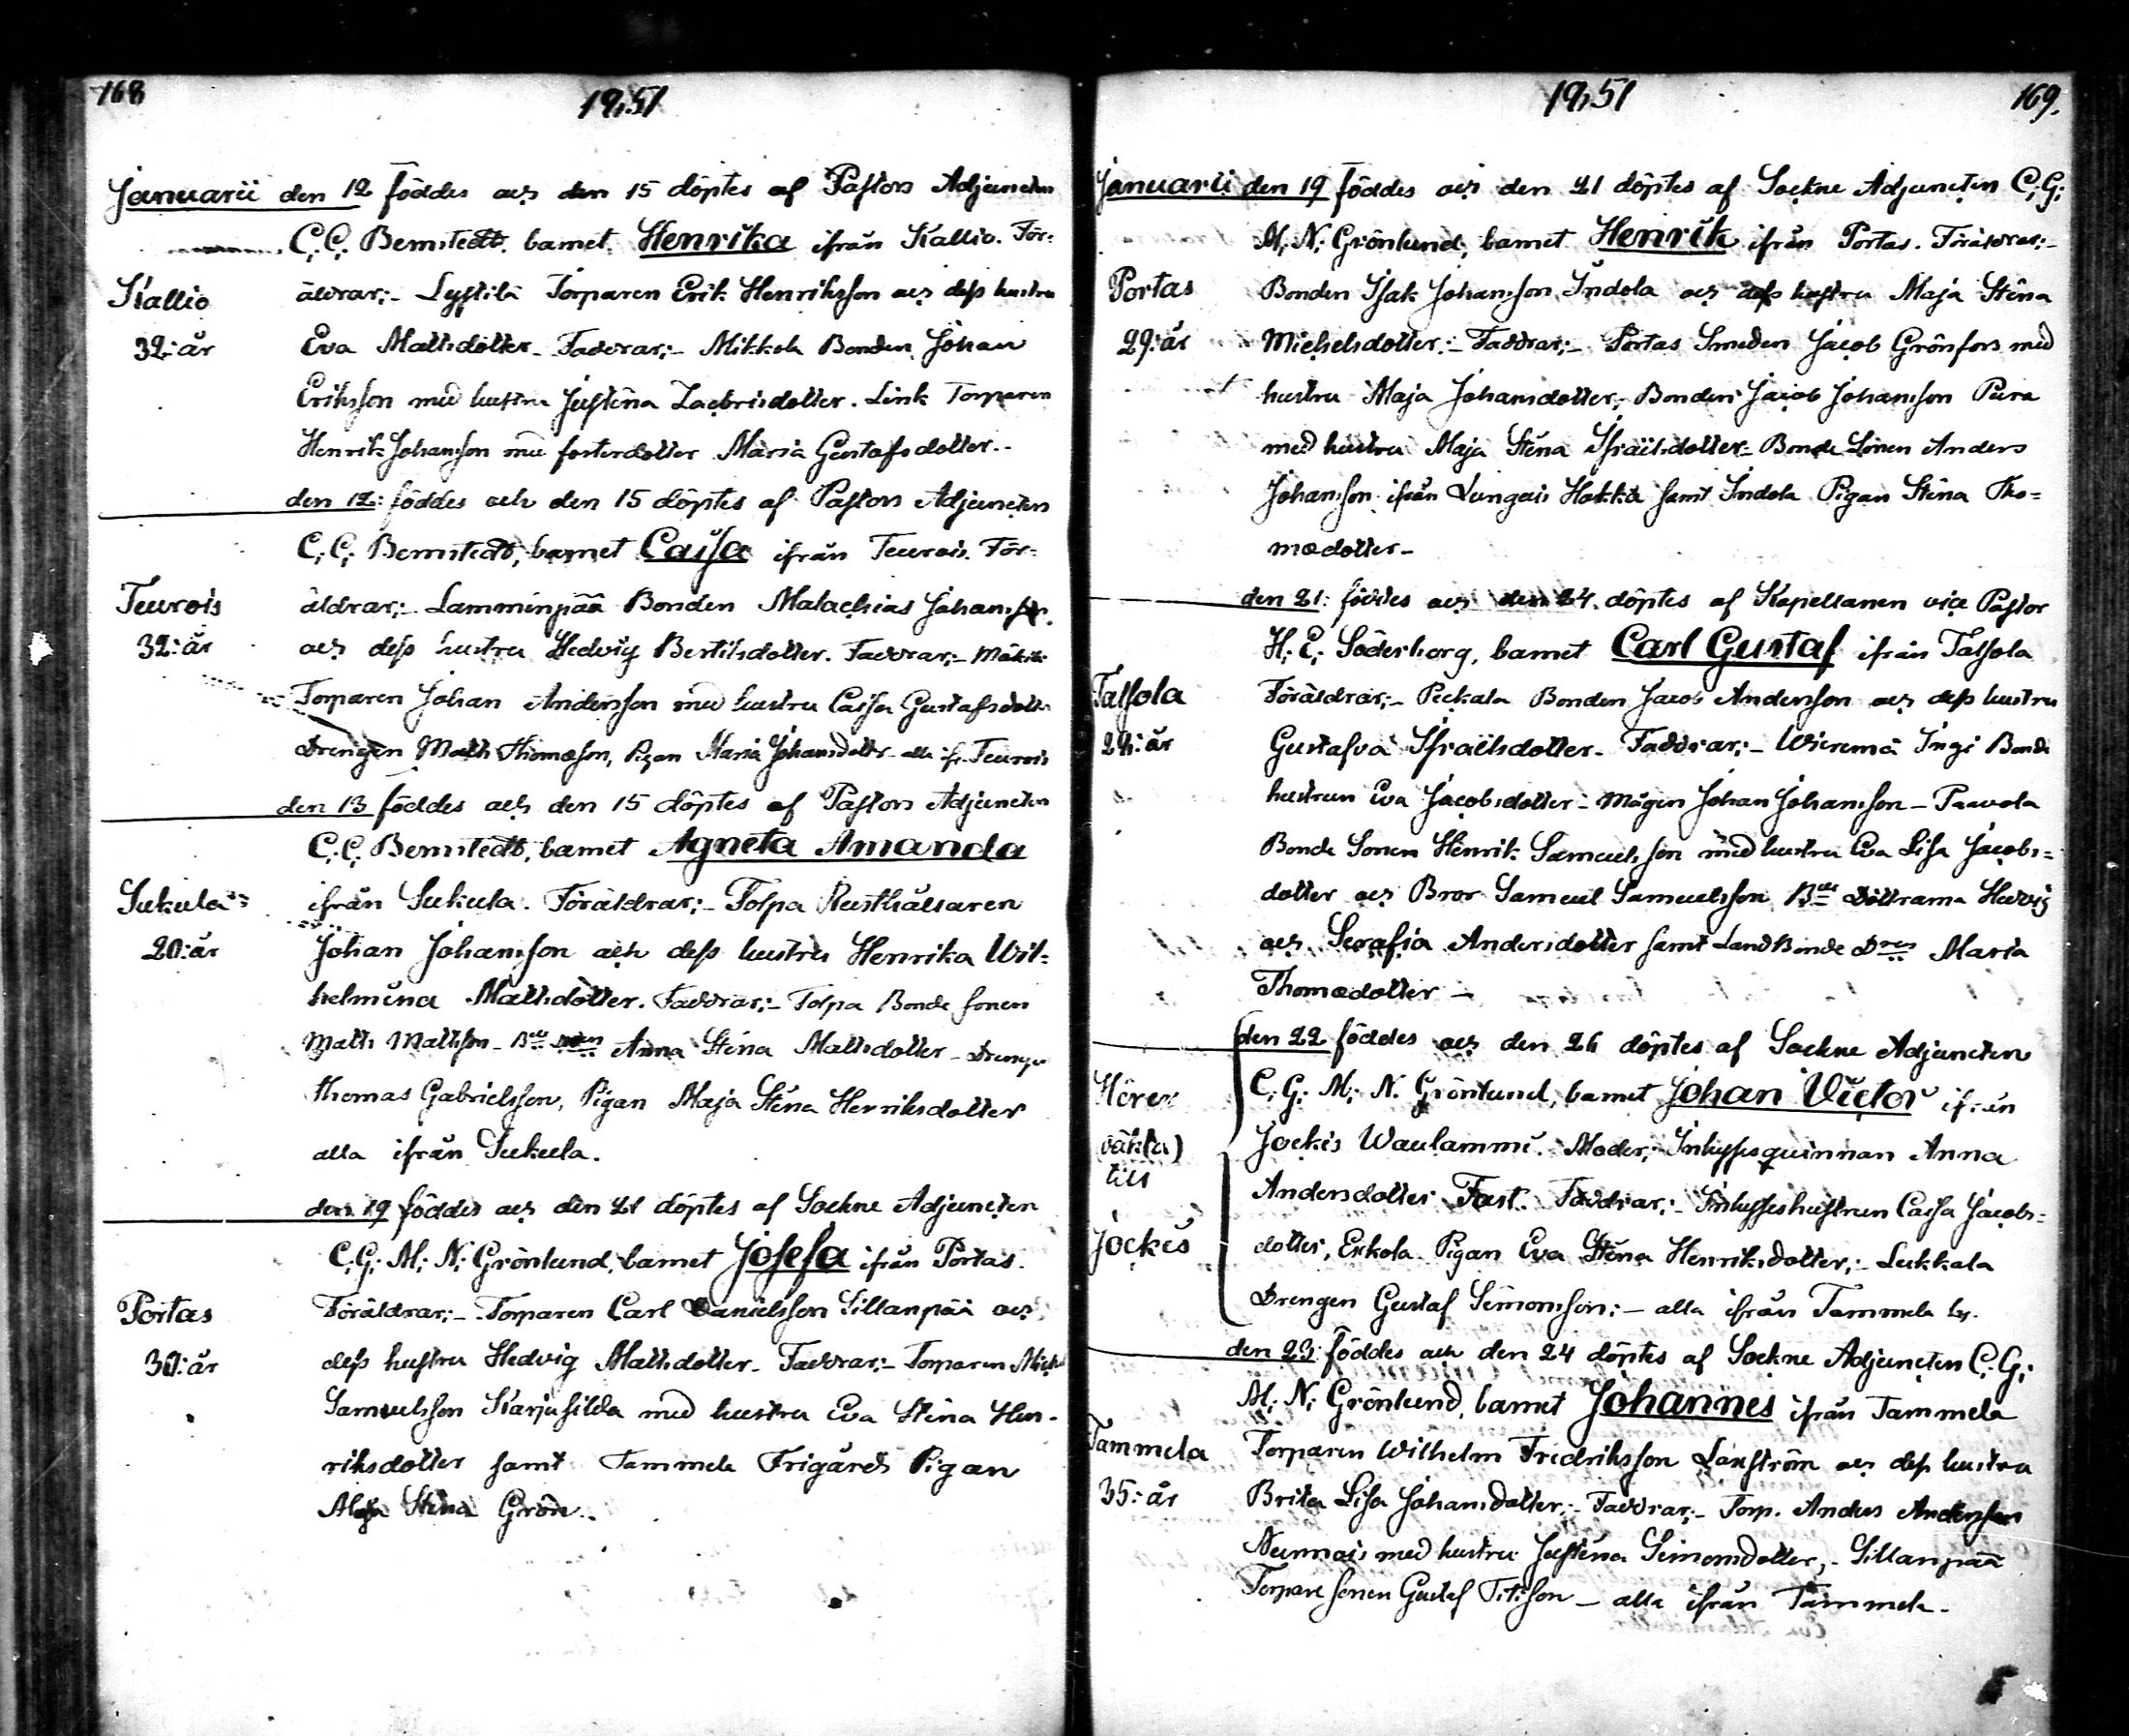 168
1851
Januarii den 12 föddes och den 15 döptes af Pastors Adjuncten
C. C. Bernstedt, barnet Henrika ifrån Kallio. För-
Kallio
äldrar;- Torparen Erik Henriksson och dess hustru
32: år
Eva Mattsdotter. Faddrar;- Mikkola Bonden Johan
Eriksson med hustru Justina. Link Torparen
Henrik Johansson med fosterdotter Maria Gustafsdotter.-
den 12: föddes och den 15 döptes af Pastors Adjuncten
C. C. Bernstedt, barnet Caisa ifrån Teurois. För-
Teurois
äldrar;- Lamminpää Bonden Malachias Johansson
32: år
och dess hustru Hedvig Bertilsdotter. Faddrar;-
Torparen Johan Andersson med hustru Caisa Gustafsdotter
Drengen Matts Thomasson, Pigan Maria Johansdotter - alla ifr. Teurois
den 13 föddes och den 15 döptes af Pastors Adjuncten
C. C. Bernstedt, barnet Agneta Amanda
Sukula
ifrån Sukula. Föräldrar;- Tolpa Rusthållaren
20: år
Johan Johansson och dess hustru Henrika Wil-
helmina Mattsdotter. Faddrar;- Tolpa Bonde sonen
Matts Mattsson - Anna Stina Mattsdotter - Drengen
Thomas Gabrielsson, Pigan Maja Stina Henriksdotter
alla ifrån Sukula.
den 19 föddes och den 21 döptes af Sockne Adjuncten
C. G. M. N. Grönlund, barnet Josefa ifrån Portas.
Portas
Föräldrar;- Torparen Carl Danielsson Sillanpää och
30: år
dess hustru Hedvig Mattsdotter - Faddrar;- Torparen Mich
Samuelsson Karjusilda med hustru Eva Stina Hen-
riksdotter samt Tammela Frigårds Pigan
Maja Stina Grön.
1851
169.
Januarii den 19 föddes och den 21 döptes af Sockne Adjuncten C. G.
M. N. Grönlund, barnet Henrik ifrån Portas. Föräldrar;-
Portas
Bonden Isak Johansson Indola och dess hustru Maja Stina
29: år
Michelsdotter.- Faddrar;- Portas Smeden Jacob Grönfors med
hustru Maja Johansdotter, Bonden Jacob Johansson Pura
med hustru Maja Stina Israëlsdotter - Bonde Sonen Anders
Johansson ifrån Lungois Hokka samt Indola Pigan Stina Tho-
mædotter -
den 21: föddes och den 24. döptes af Kapellanen vice Pastor
H. E. Söderborg, barnet Carl Gustaf ifrån Talsola
Talsola
Föräldrar;- Peckala Bonden Jacob Andersson och dess hustru
24: år
Gustafva Israëlsdotter - Faddrar;- Wieremä Ingi Bonde
hustrun Eva Jacobsdotter - Mågen Johan Johansson - Paavola
Bonde Sonen Henrik Samuelsson med hustru Eva Lisa Jacobs-
dotter och Bror Samuel Samuelsson, Döttrarna Hedvig
och Serafia Andersdotter samt Land Bonde Maria
Thomædotter -
den 22 föddes och den 26 döptes af Sockne Adjuncten
Hörer
C. G. M. N. Grönlund, barnet Johan Victor ifrån
till
Jockis
Jockis Waulammi. Moder;- Inhysesquinnan Anna
Andersdotter Fast. Faddrar;- Inhyseshustrun Caisa Jacobs-
dotter, Erkola Pigan Eva Stina Henriksdotter;- Lukkala
Drengen Gustaf Simonsson;- alla ifrån Tammela by.
den 23: föddes och den 24 döptes af Sockne Adjuncten C. G.
M. N. Grönlund, barnet Johannes ifrån Tammela
Tammela
Torparen Wilhelm Fredriksson Lanström och dess hustru
35: år
Brita Lisa Johansdotter;- Faddrar;- Torp. Anders Andersson
Nummois med hustru Justina Simonsdotter, - Sillanpää
Torpare sonen Gustaf - alla ifrån Tammela.